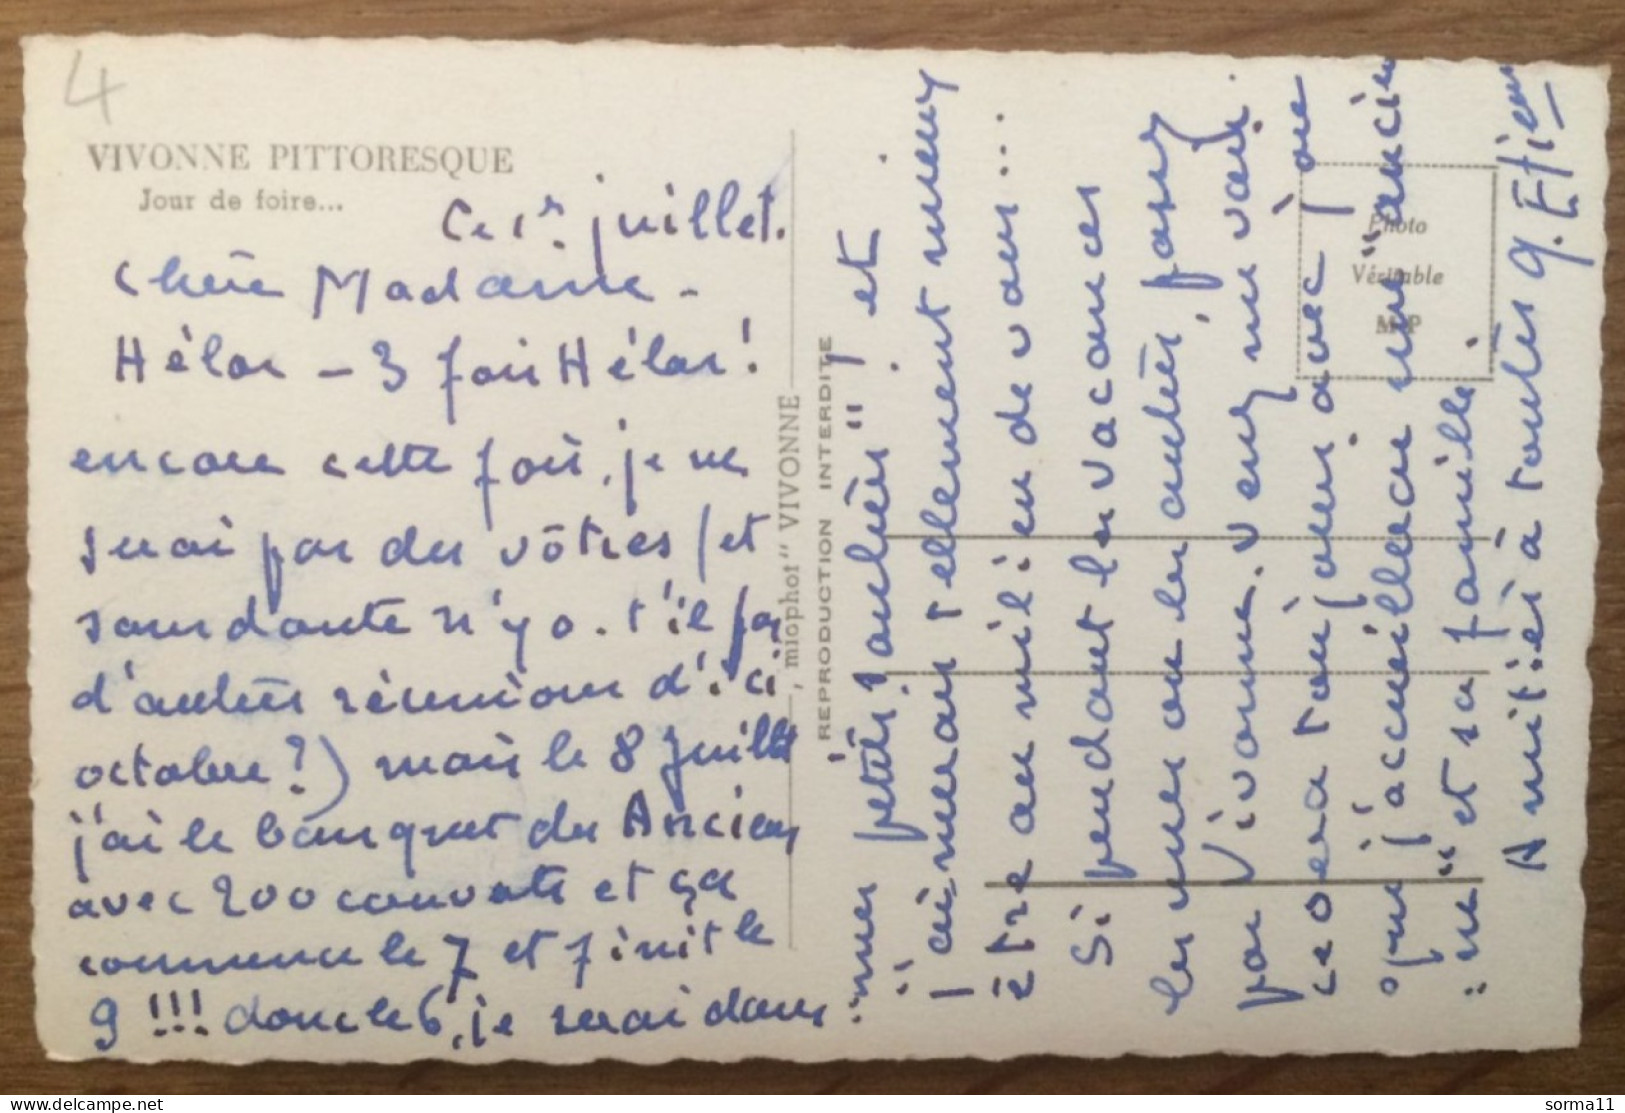 4
VIVONNE PITTORESQUE
Jour de foire...
Ce 1er juillet.
Chère Madame -
Hélas - 3 fois Hélas !
encore cette fois, je ne
serai pas des vôtres (et
sans doute n'y a-t'il pas
d'autres réunions d'ici
octobre ?) mais le 8 Juillet
j'ai le banquet des Anciens
avec 200 couverts et ça
commence le 7 et finit le
9 !!! donc le 6, je serai dans
mes petits souliers" et
j'aimerais tellement mieux
être au milieu de vous...
Si pendant les vacances
les unes ou les autres, passez
par Vivonne. venez me voir.
ce sera toujours avec joie
que j'accueillerai une "ancienne"
et sa famille.
Amitiés à toutes g. Etienne
miophot" VIVONNE
REPRODUCTION INTERDITE
Photo
Véritable
sorma11
delcampe.net